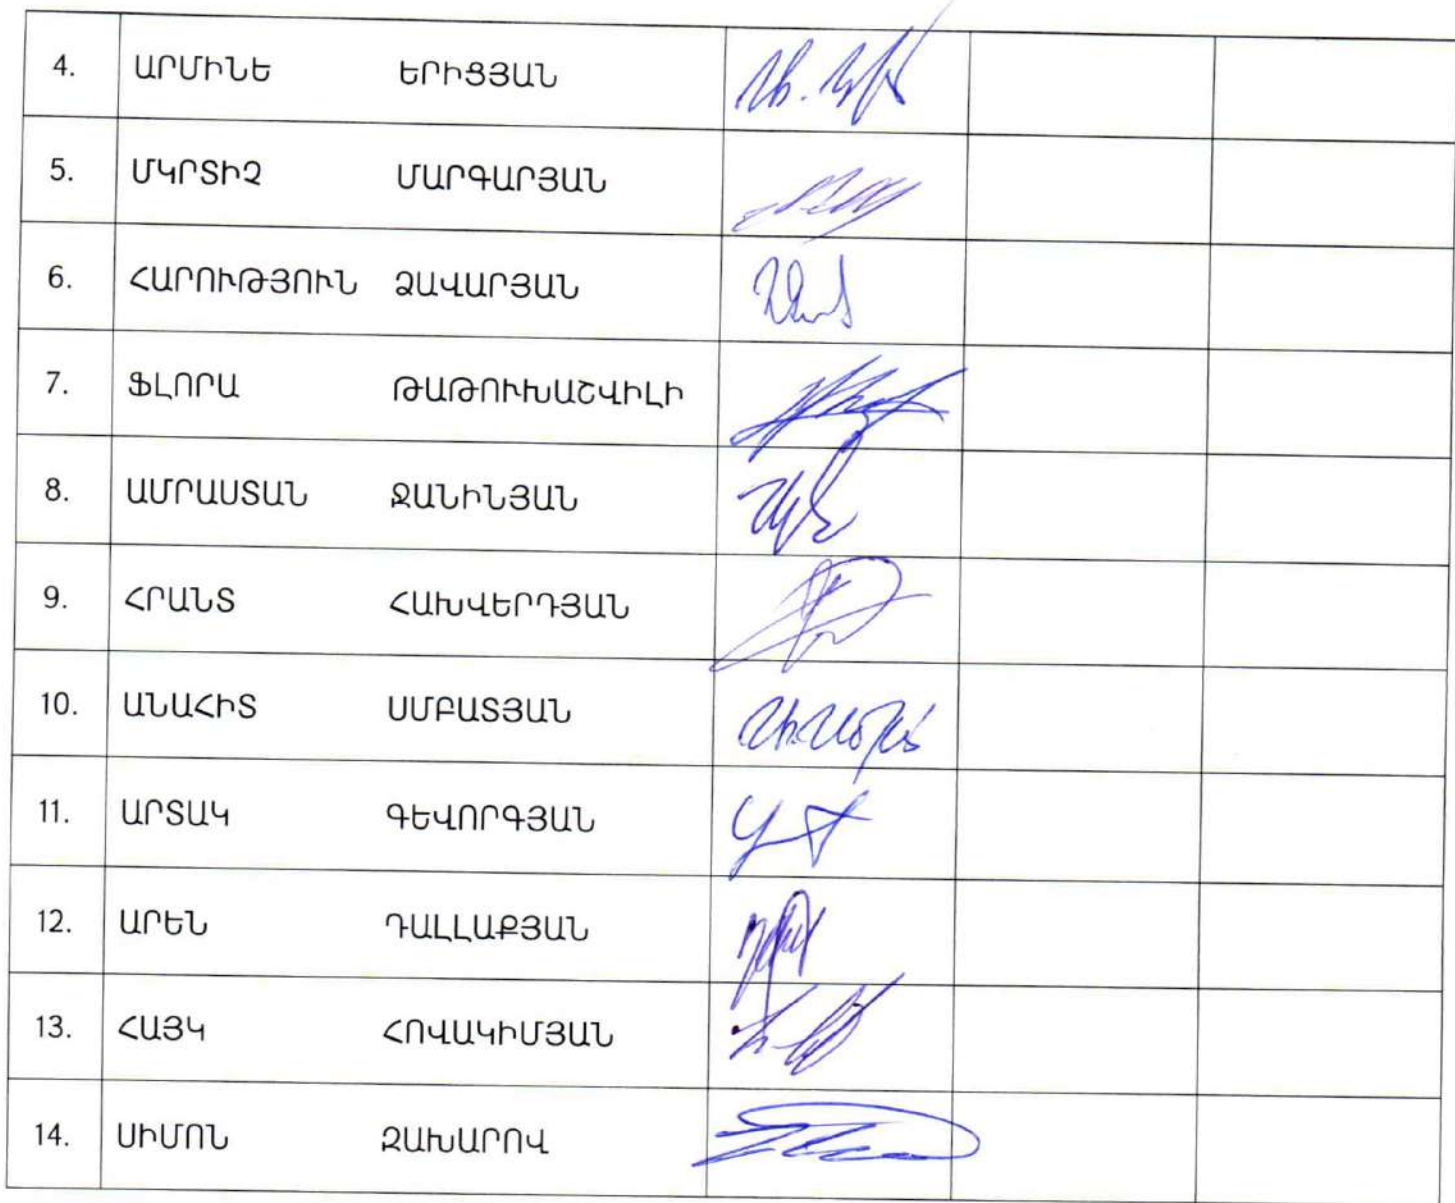 4. ԱՐՄԻՆԵ ԵՐԻՑՅԱՆ
5. ՄԿՐՏԻՉ ՄԱՐԳԱՐՅԱՆ
6. ՀԱՐՈՒԹՅՈՒՆ ՁԱՎԱՐՅԱՆ
7. ՖԼՈՐԱ ԹԱԹՈՒԽԱՇՎԻԼԻ
8. ԱՄՐԱՍՏԱՆ ՋԱՆԻՆՅԱՆ
9. ՀՐԱՆՏ ՀԱԽՎԵՐԴՅԱՆ
10. ԱՆԱՀԻՏ ՍՄԲԱՏՅԱՆ
11. ԱՐՏԱԿ ԳԵՎՈՐԳՅԱՆ
12. ԱՐԵՆ ԴԱԼԼԱՔՅԱՆ
13. ՀԱՅԿ ՀՈՎԱԿԻՄՅԱՆ
14. ՍԻՄՈՆ ԶԱԽԱՐՈՎ